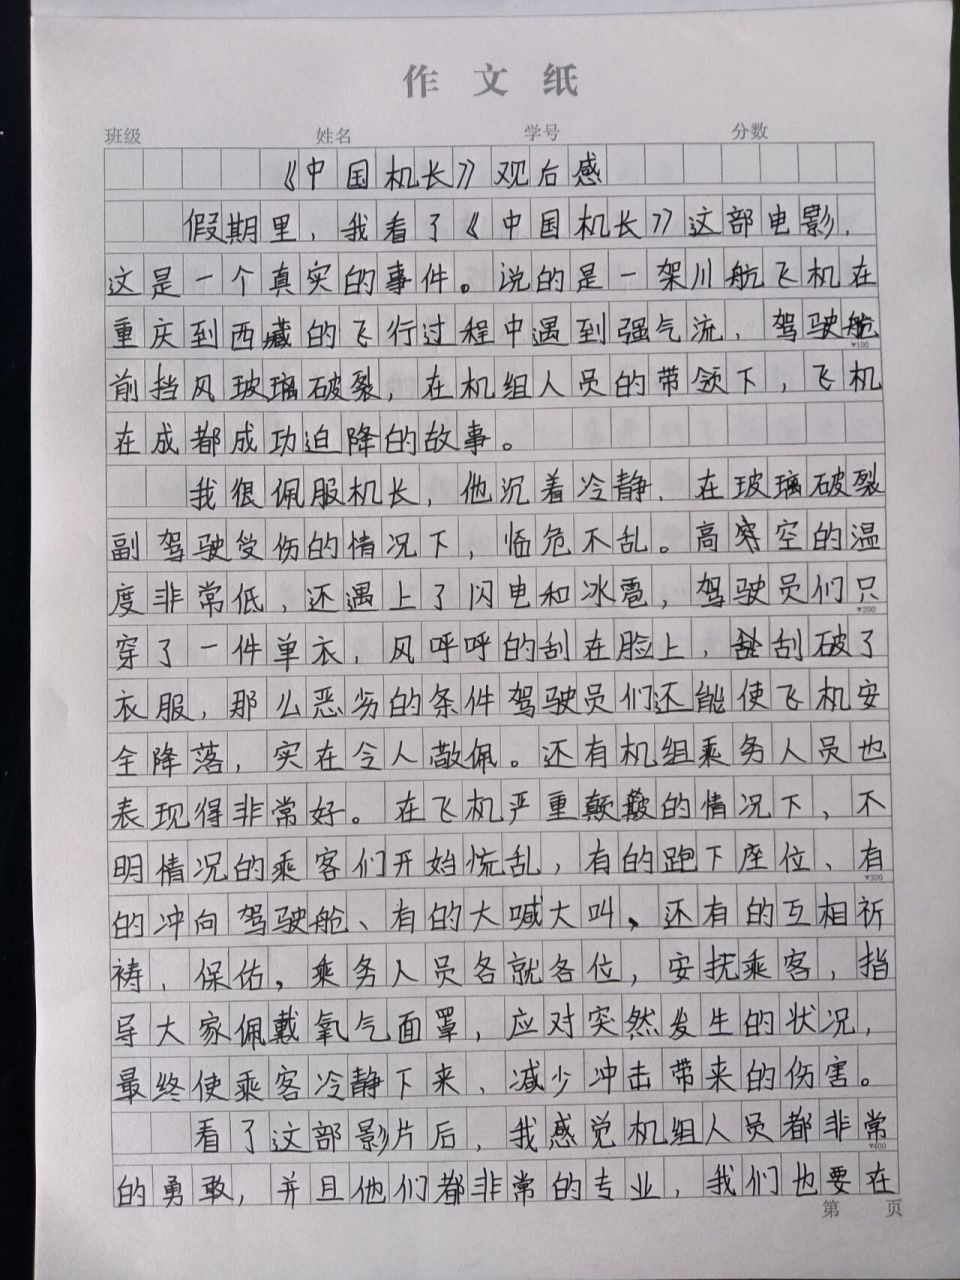 作文纸
班级 姓名 学号 分数
《中国机长》观后感
假期里，我看了《中国机长》这部电影，
这是一个真实的事件。说的是一架川航飞机在
重庆到西藏的飞行过程中遇到强气流，驾驶舱
▼100
前挡风玻璃破裂，在机组人员的带领下，飞机
在成都成功迫降的故事。
我很佩服机长，他沉着冷静，在玻璃破裂
副驾驶受伤的情况下，临危不乱。高空的温
度非常低，还遇上了闪电和冰雹，驾驶员们只
▼200
穿了一件单衣，风呼呼的刮在脸上，刮破了
衣服，那么恶劣的条件驾驶员们还能使飞机安
全降落，实在令人敬佩。还有机组乘务人员也
表现得非常好。在飞机严重颠簸的情况下，不
明情况的乘客们开始慌乱，有的跑下座位、有
▼300
的冲向驾驶舱、有的大喊大叫，还有的互相祈
祷，保佑，乘务人员各就各位，安抚乘客，指
导大家佩戴氧气面罩，应对突然发生的状况，
最终使乘客冷静下来，减少冲击带来的伤害。
看了这部影片后，我感觉机组人员都非常
▼400
的勇敢，并且他们都非常的专业，我们也要在
第 页